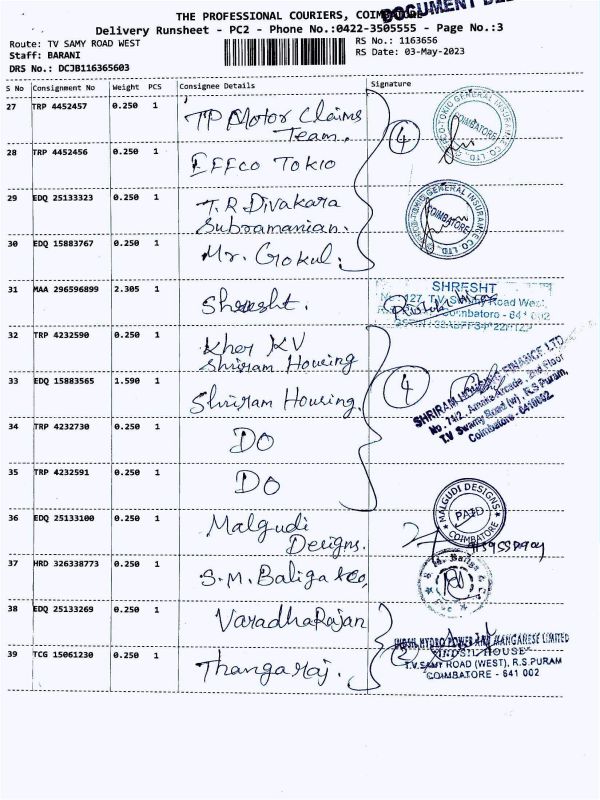 THE PROFESSIONAL COURIERS, COIMBATORE
DOCUMENT
Delivery Runsheet - PC2 - Phone No.:0422-3505555 - Page No.:3
Route: TV SAMY ROAD WEST
RS No.: 1163656
Staff: BARANI
RS Date: 03-May-2023
DRS No.: DCJB116365603
S No Consignment No Weight PCS Consignee Details Signature
27 TRP 4452457 0.250 1 TP Motor Claims
Team.
4
COIMBATORE
28 TRP 4452456 0.250 1 EFFCO TOKIO
29 EDQ 25133323 0.250 1 T.R Divakara
Subramanian.
COIMBATORE
30 EDQ 15883767 0.250 1 Mr. Gokul.
31 MAA 296596899 2.305 1 Shresht.
SHRESHT
No. 127, T.V. Swamy Road West,
Coimbatore - 641 002
32 TRP 4232590 0.250 1 Kher KV
Shriram Housing
33 EDQ 15883565 1.590 1 Shriram Housing.
4
SHRIRAM HOUSING FINANCE LTD
2nd Floor
T.V Swamy Road (w), R.S.Puram,
Coimbatore - 6410002.
34 TRP 4232730 0.250 1 DO
35 TRP 4232591 0.250 1 DO
36 EDQ 25133100 0.250 1 Malgudi
Designs.
MALGUDI DESIGNS
PAID
COIMBATORE
37 HRD 326338773 0.250 1 S.M. Baliga &co,
38 EDQ 25133269 0.250 1 VaradhaRajan
39 TCG 15061230 0.250 1 Thangaraj.
2
INDSIL HYDRO POWER AND MANGANESE LIMITED
"INDSIL HOUSE"
T.V.SAMY ROAD (WEST), R.S.PURAM
COIMBATORE - 641 002